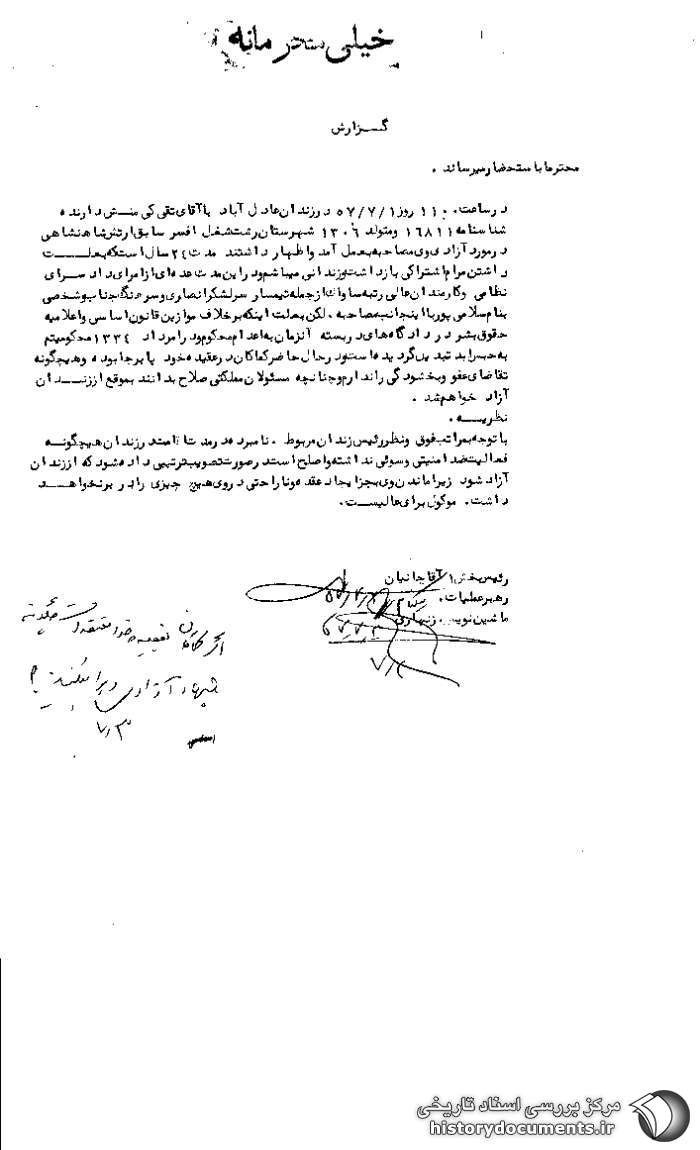 خیلی محرمانه
گزارش
محترما باستحضار میرساند .
در ساعت ۱۱۰۰ روز ۵۷/۷/۱ در زندان عادل آباد با آقای تقی کی منش دارنده
شناسنامه ۱۶۸۱۱ و متولد ۱۳۰۶ شهرستان رشت شغل افسر سابق ارتش شاهنشاهی
در مورد آزادی وی مصاحبه بعمل آمد و اظهار داشتند مدت ۲۴ سال است که بعلت
داشتن مرام اشتراکی بازداشت و زندانی میباشم و در این مدت عده ای از امرای دادسرای
نظامی و کارمندان عالی رتبه ساواک از جمله تیمسار سرلشکر انصاری و سرهنگ جناب و شخصی
بنام سلامی پور با اینجانب مصاحبه . لکن بعلت اینکه برخلاف موازین قانون اساسی و اعلامیه
حقوق بشر در دادگاه های دربسته آنزمان به اعدام محکوم و در امرداد ۱۳۳۴ محکومیتم
به حبس ابد تبدیل گردیده است و در حال حاضر کماکان در عقیده خود پابرجا بوده و هیچگونه
تقاضای عفو و بخشودگی را ندارم و چنانچه مسئولان مملکتی صلاح بدانند بموقع از زندان
آزاد خواهم شد .
نظریه .
با توجه بمراتب فوق و نظر رئیس زندان مربوط . نامبرده در مدت اقامت در زندان هیچگونه
فعالیت ضد امنیتی و سوئی نداشته و اصلح است در صورت تصویب ترتیبی داده شود که از زندان
آزاد شود زیرا ماندن وی بجز ایجاد عقده و ناراحتی در روی هیچ چیزی را در بر نخواهد
داشت . موکول برای عالیست .
رئیس بخش ۱ آقاجانیان
رهبر عملیات .
ماشین نویس . زنهاری
۵۷/۷/۲
۷/۲
اگر کماکان بعقیده خود معتقد است چگونه
پیشنهاد آزادی ویرا میکنند ؟
۷/۳
مرکز بررسی اسناد تاریخی
historydocuments.ir